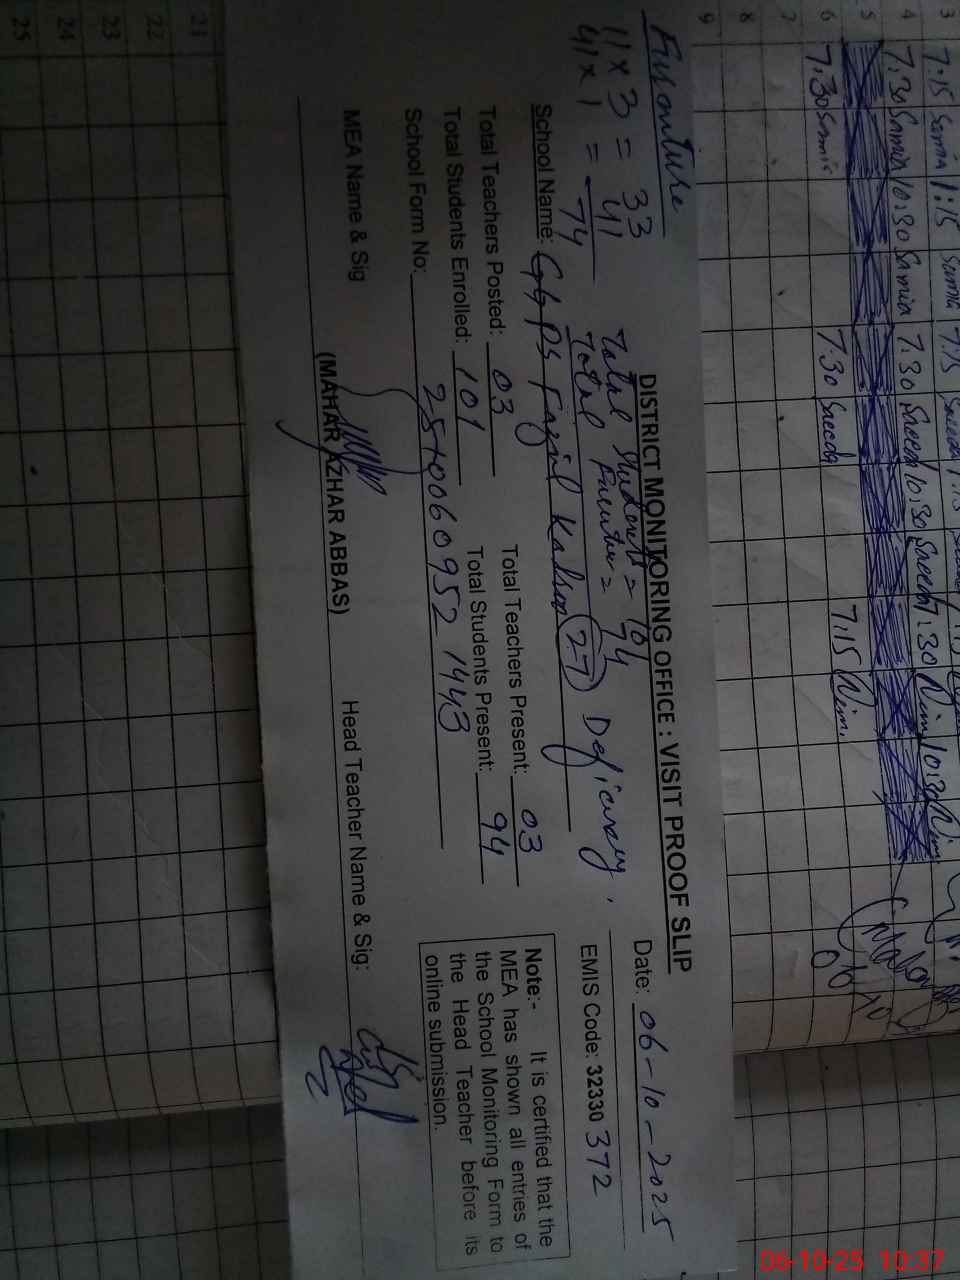 3 7:15 Samia 1:15 Samia 7:15 Saeeda 1:15
4 7:30 Samia 10:30 Samia 7:30 Saeeda 10:30 Saeeda 1:30 10:30
5
6 7:30 Samia 7:30 Saeeda 7:15
7
8
9
06 10
Furniture
11 x 3 = 33
41 x 1 = 41
74
Total Students = 101
Total Furniture = 74
27 Deficiency
DISTRICT MONITORING OFFICE : VISIT PROOF SLIP
Date: 06-10-2025
School Name: GGPS Fazil
EMIS Code: 32330 372
Total Teachers Posted: 03
Total Teachers Present: 03
Total Students Enrolled: 101
Total Students Present: 94
School Form No: 251006 0952 1443
Note:- It is certified that the
MEA has shown all entries of
the School Monitoring Form to
the Head Teacher before its
online submission.
MEA Name & Sig
(MAHAR AZHAR ABBAS)
Head Teacher Name & Sig:
21
22
23
24
25
06-10-25 10:37